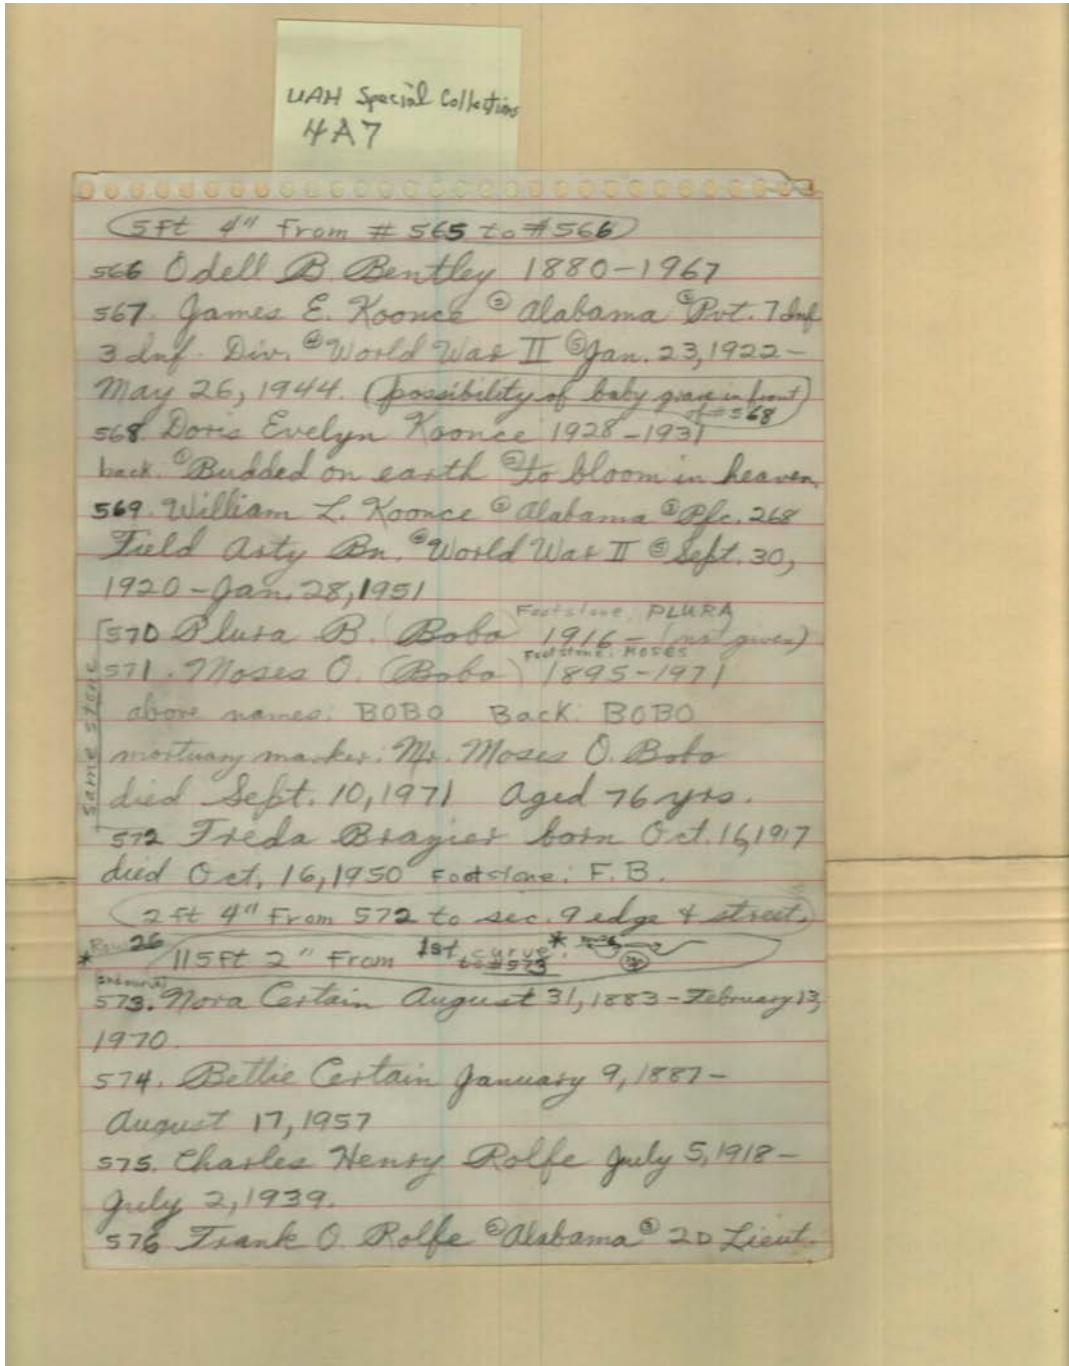 UAH Special Collections
4A7
5ft 4" From # 565 to #566
566 Odell B Bentley 1880-1967
567. James E. Koonce ② Alabama ③ Pvt. 7 Inf
3 Inf. Div. ④ World War II ⑤ Jan. 23, 1922-
May 26, 1944. (possibility of baby grave in front
of #568
568. Doris Evelyn Koonce 1928-1931
back. ① Budded on earth ② to bloom in heaven.
569. William L. Koonce ② Alabama ③ Pfc. 268
Field Arty Bn. ④ World War II ⑤ Sept. 30,
1920-Jan. 28, 1951
Footstone: PLURA
570 Plura B. (Bobo) 1916- (not given)
Footstone: MOSES
571. Moses O. (Bobo) 1895-1971
same stone
above names: BOBO Back: BOBO
mortuary marker: Mr. Moses O. Bobo
died Sept. 10, 1971 Aged 76 yrs.
572 Freda Brazier born Oct. 16, 1917
died Oct. 16, 1950 Footstone: F.B.
2 ft 4" From 572 to sec. 9 edge & street.
* Row 26
115ft 2" From 1st curve *
to #573
573. Nora Certain August 31, 1883-February 13,
1970.
574. Bettie Certain January 9, 1887-
August 17, 1957
575. Charles Henry Rolfe July 5, 1918-
July 2, 1939.
576 Frank O. Rolfe ② Alabama ③ 2D Lieut.